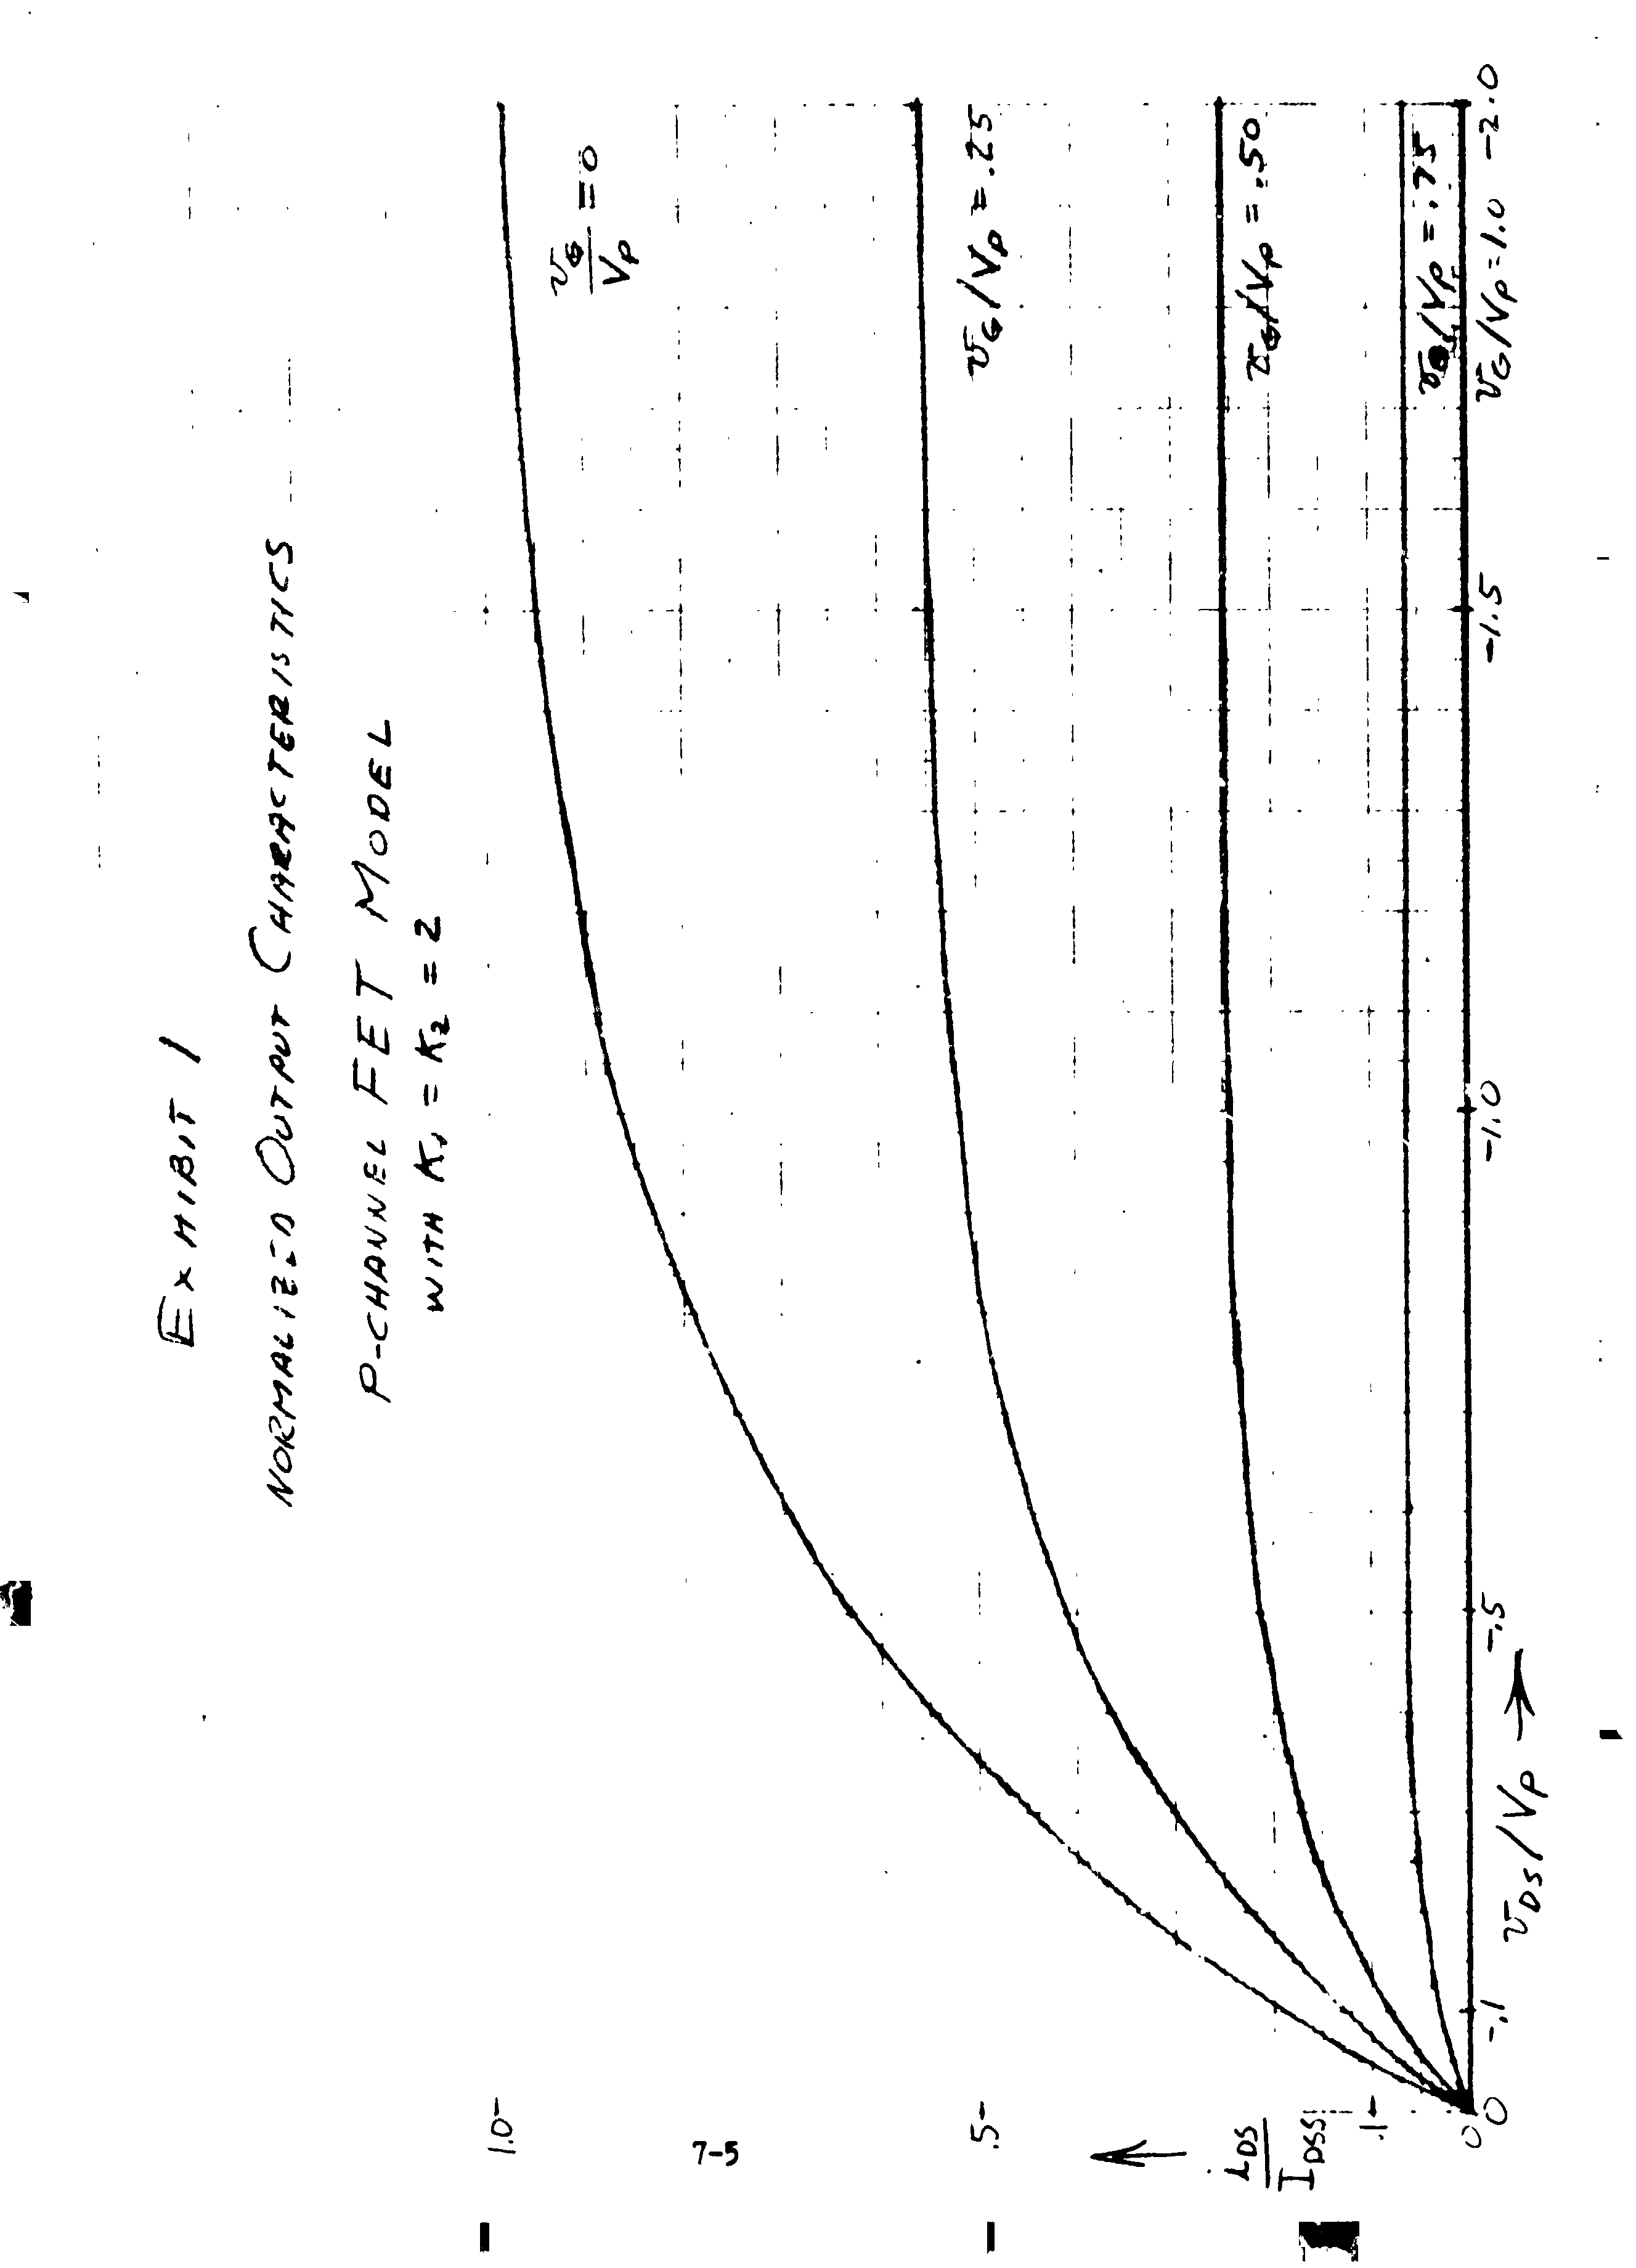 EXHIBIT 1
NORMALIZED OUTPUT CHARACTERISTICS
P-CHANNEL FET MODEL
WITH K₁ = K₂ = 2
v_G/V_P = 0
v_G/V_P = .25
v_G/V_P = .50
v_G/V_P = .75
v_G/V_P = 1.0
1.0
.5
.1
0
i_DS/I_DSS
0
-.1
-.5
-1.0
-1.5
-2.0
v_DS/V_P →
7-5